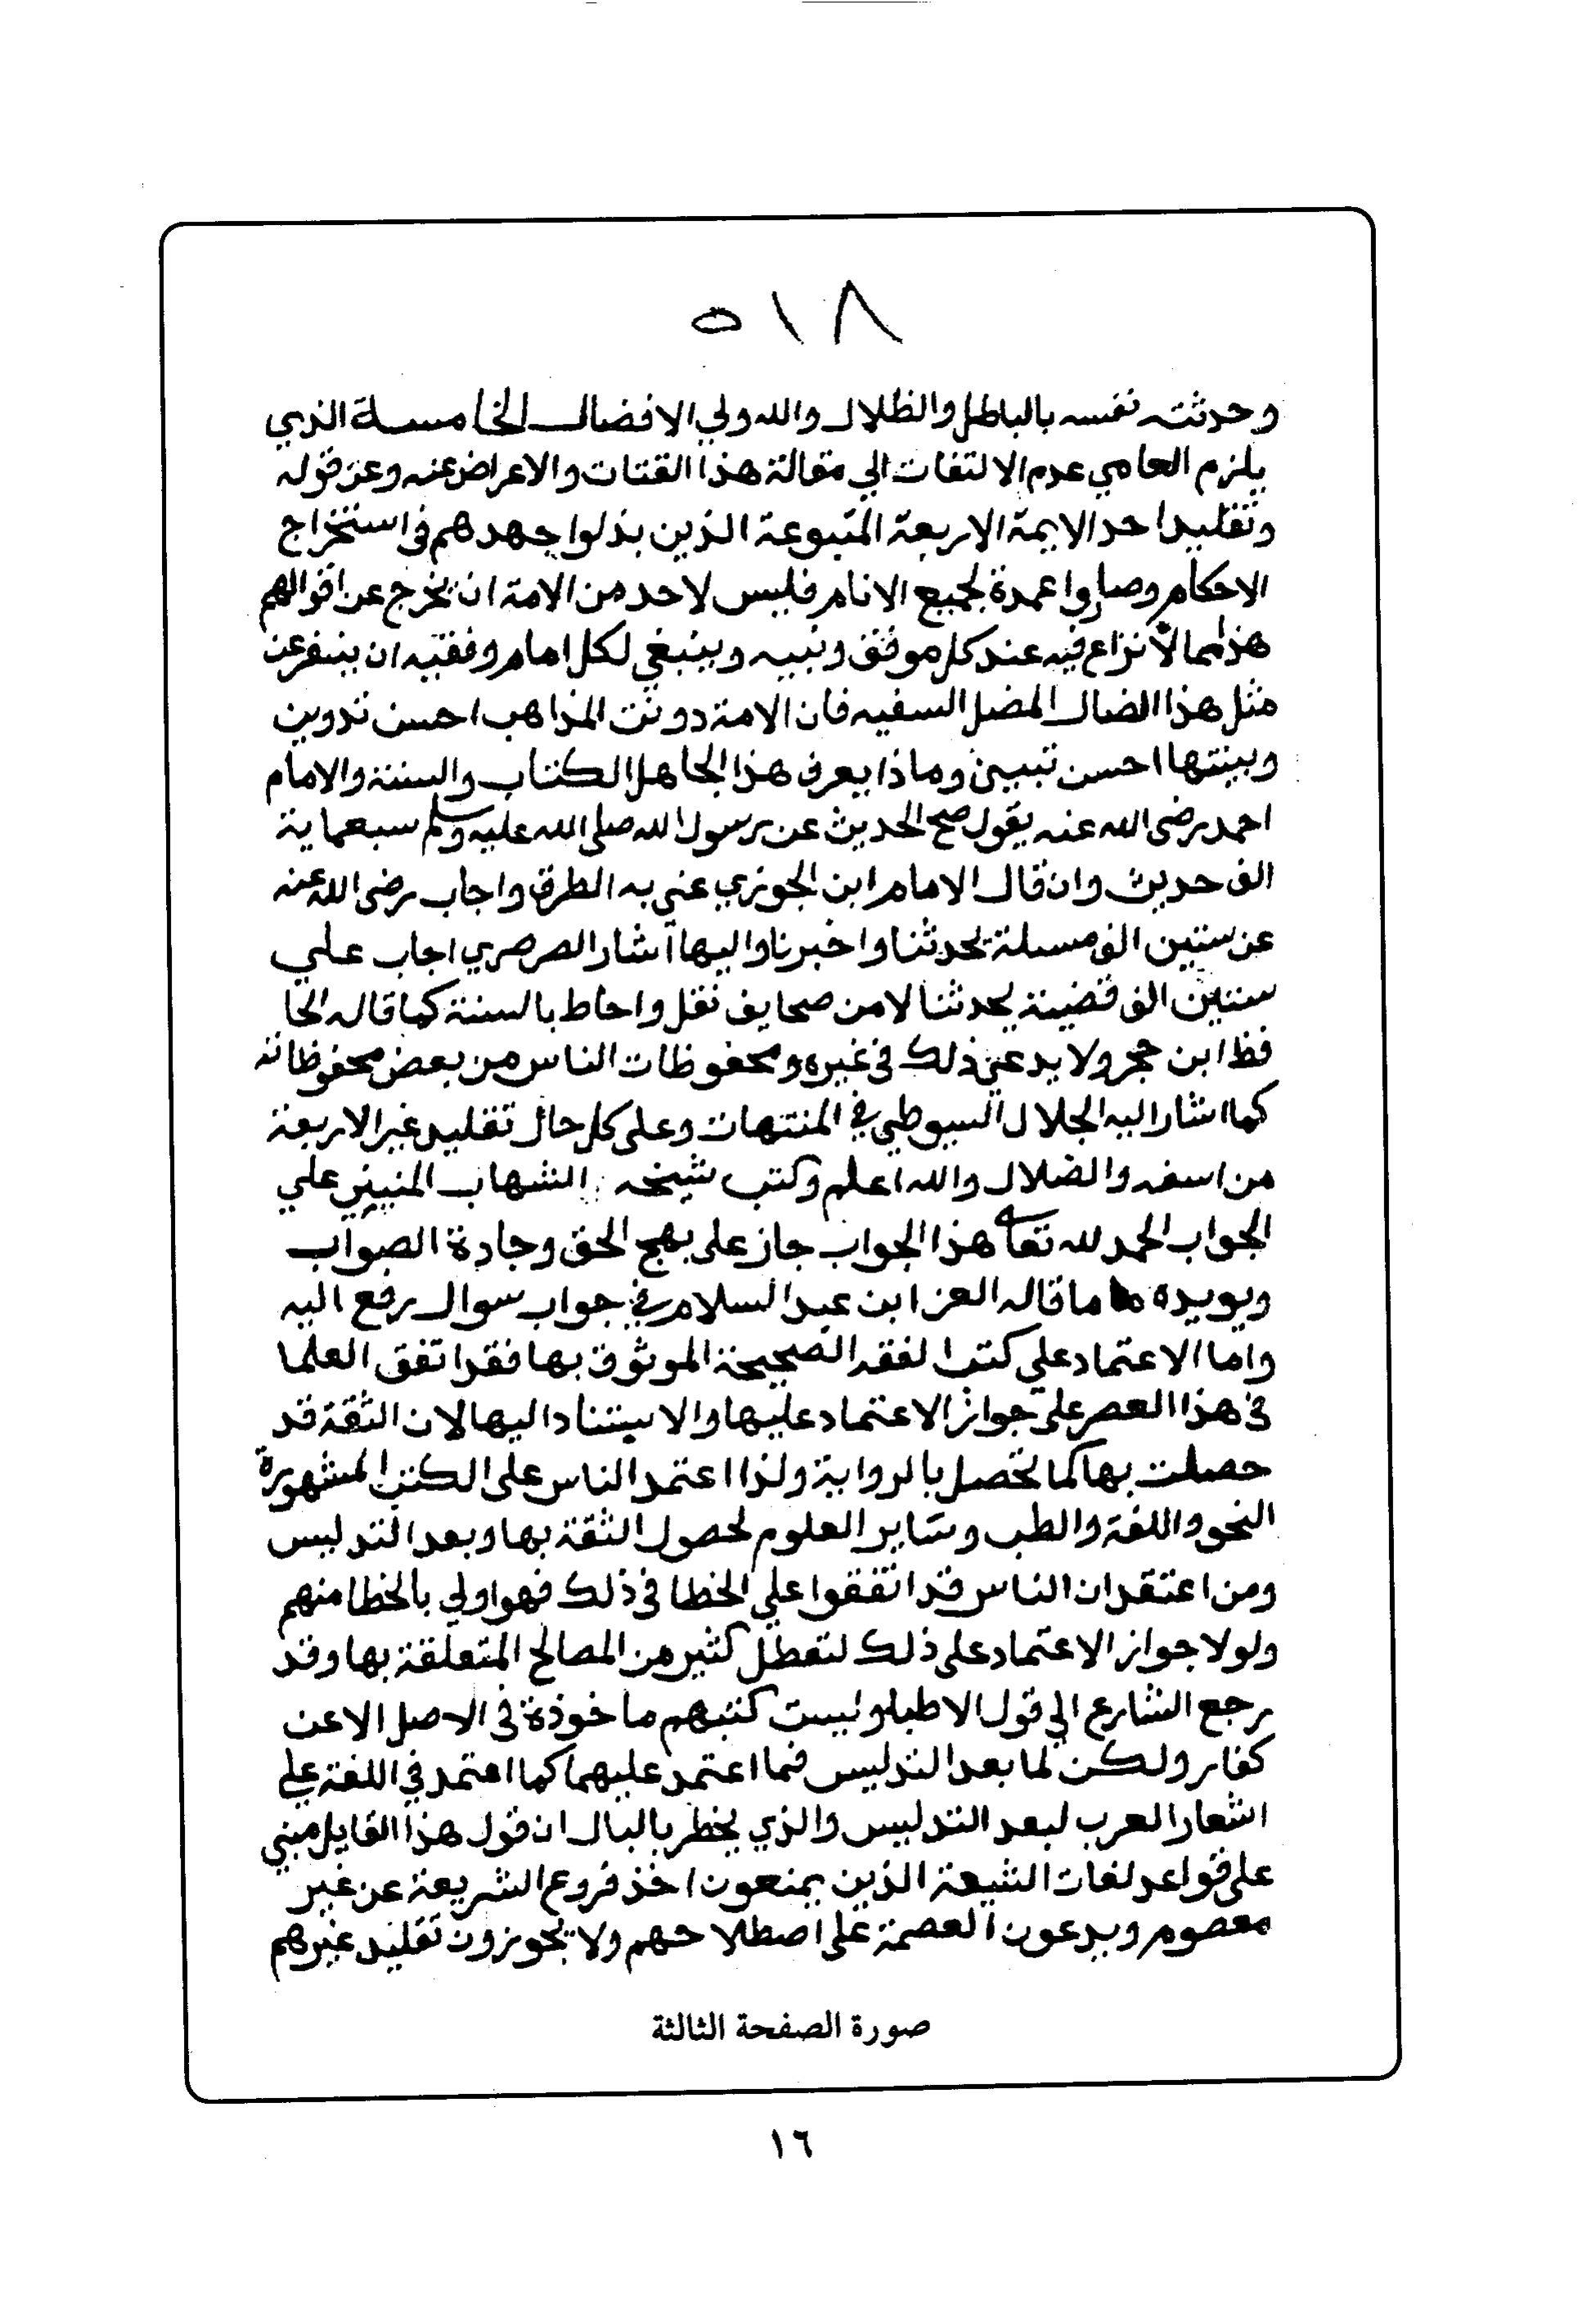 ٥١٨
وحدثته نفسه بالباطل والظلال والله ولي الافضال الخامسة الذي
يلزم العامي عدم الالتفات الي مقالة هذا القتات والاعراض عنه وعن قوله
وتقليد احد الايمة الاربعة المتبوعة الذين بذلوا جهدهم في استخراج
الاحكام وصاروا عمدة لجميع الانام فليس لاحد من الامة ان يخرج عن اقوالهم
هذا مما لا نزاع فيه عند كل موفق ونبيه وينبغي لكل امام وفقيه ان ينفر عن
مثل هذا الضال المضل السفيه فان الامة دونت المذاهب احسن تدوين
وبينتها احسن تبيين وماذا يعرف هذا الجاهل الكتاب والسنة والامام
احمد رضى الله عنه يقول صح الحديث عن رسول الله صلى الله عليه وسلم سبعماية
الف حديث وان قال الامام ابن الجوزي عني به الطرق واجاب رضى الله عنه
عن ستين الف مسلة بحدثنا واخبرنا واليها اشار الصرصري اجاب علي
ستين الف قضية بحدثنا لا من صحايف نقل واحاط بالسنة كما قاله الحا
فظ ابن حجر ولا يدعي ذلك في غيره ومحفوظات الناس من بعض محفوظاته
كما اشار اليه الجلال السيوطي في المنتهات وعلى كل حال تقليد غير الاربعة
من اسفه والضلال والله اعلم وكتب شيخه الشهاب المنيني علي
الجواب الحمد لله تعالى هذا الجواب جاز على نهج الحق وجادة الصواب
ويويده ما قاله العز ابن عبد السلام في جواب سوال رفع اليه
واما الاعتماد علي كتب الفقه الصحيحة الموثوق بها فقد اتفق العلما
في هذا العصر على جواز الاعتماد عليها والاستنادا اليها لان الثقة قد
حصلت بها كما تحصل بالرواية ولذا اعتمد الناس على الكتب المشهورة
النحو واللغة والطب وساير العلوم لحصول الثقة بها وبعد التدليس
ومن اعتقد ان الناس قد اتفقوا علي الخطا في ذلك فهو اولي بالخطا منهم
ولولا جواز الاعتماد على ذلك لتعطل كثير من المصالح المتعلقة بها وقد
رجع الشارع الي قول الاطبا وليست كتبهم ماخوذة في الاصل الا عن
كفار ولكن لما بعد التدليس فما اعتمد عليهما كما اعتمد في اللغة علي
اشعار العرب لبعد التدليس والذي يخطر بالبال ان قول هذا القايل مبني
على قواعد لغات الشيعة الذين يمنعون اخذ فروع الشريعة عن غير
معصوم ويدعون العصمة على اصطلاحهم ولا يجوزون تقليد غيرهم
صورة الصفحة الثالثة
١٦